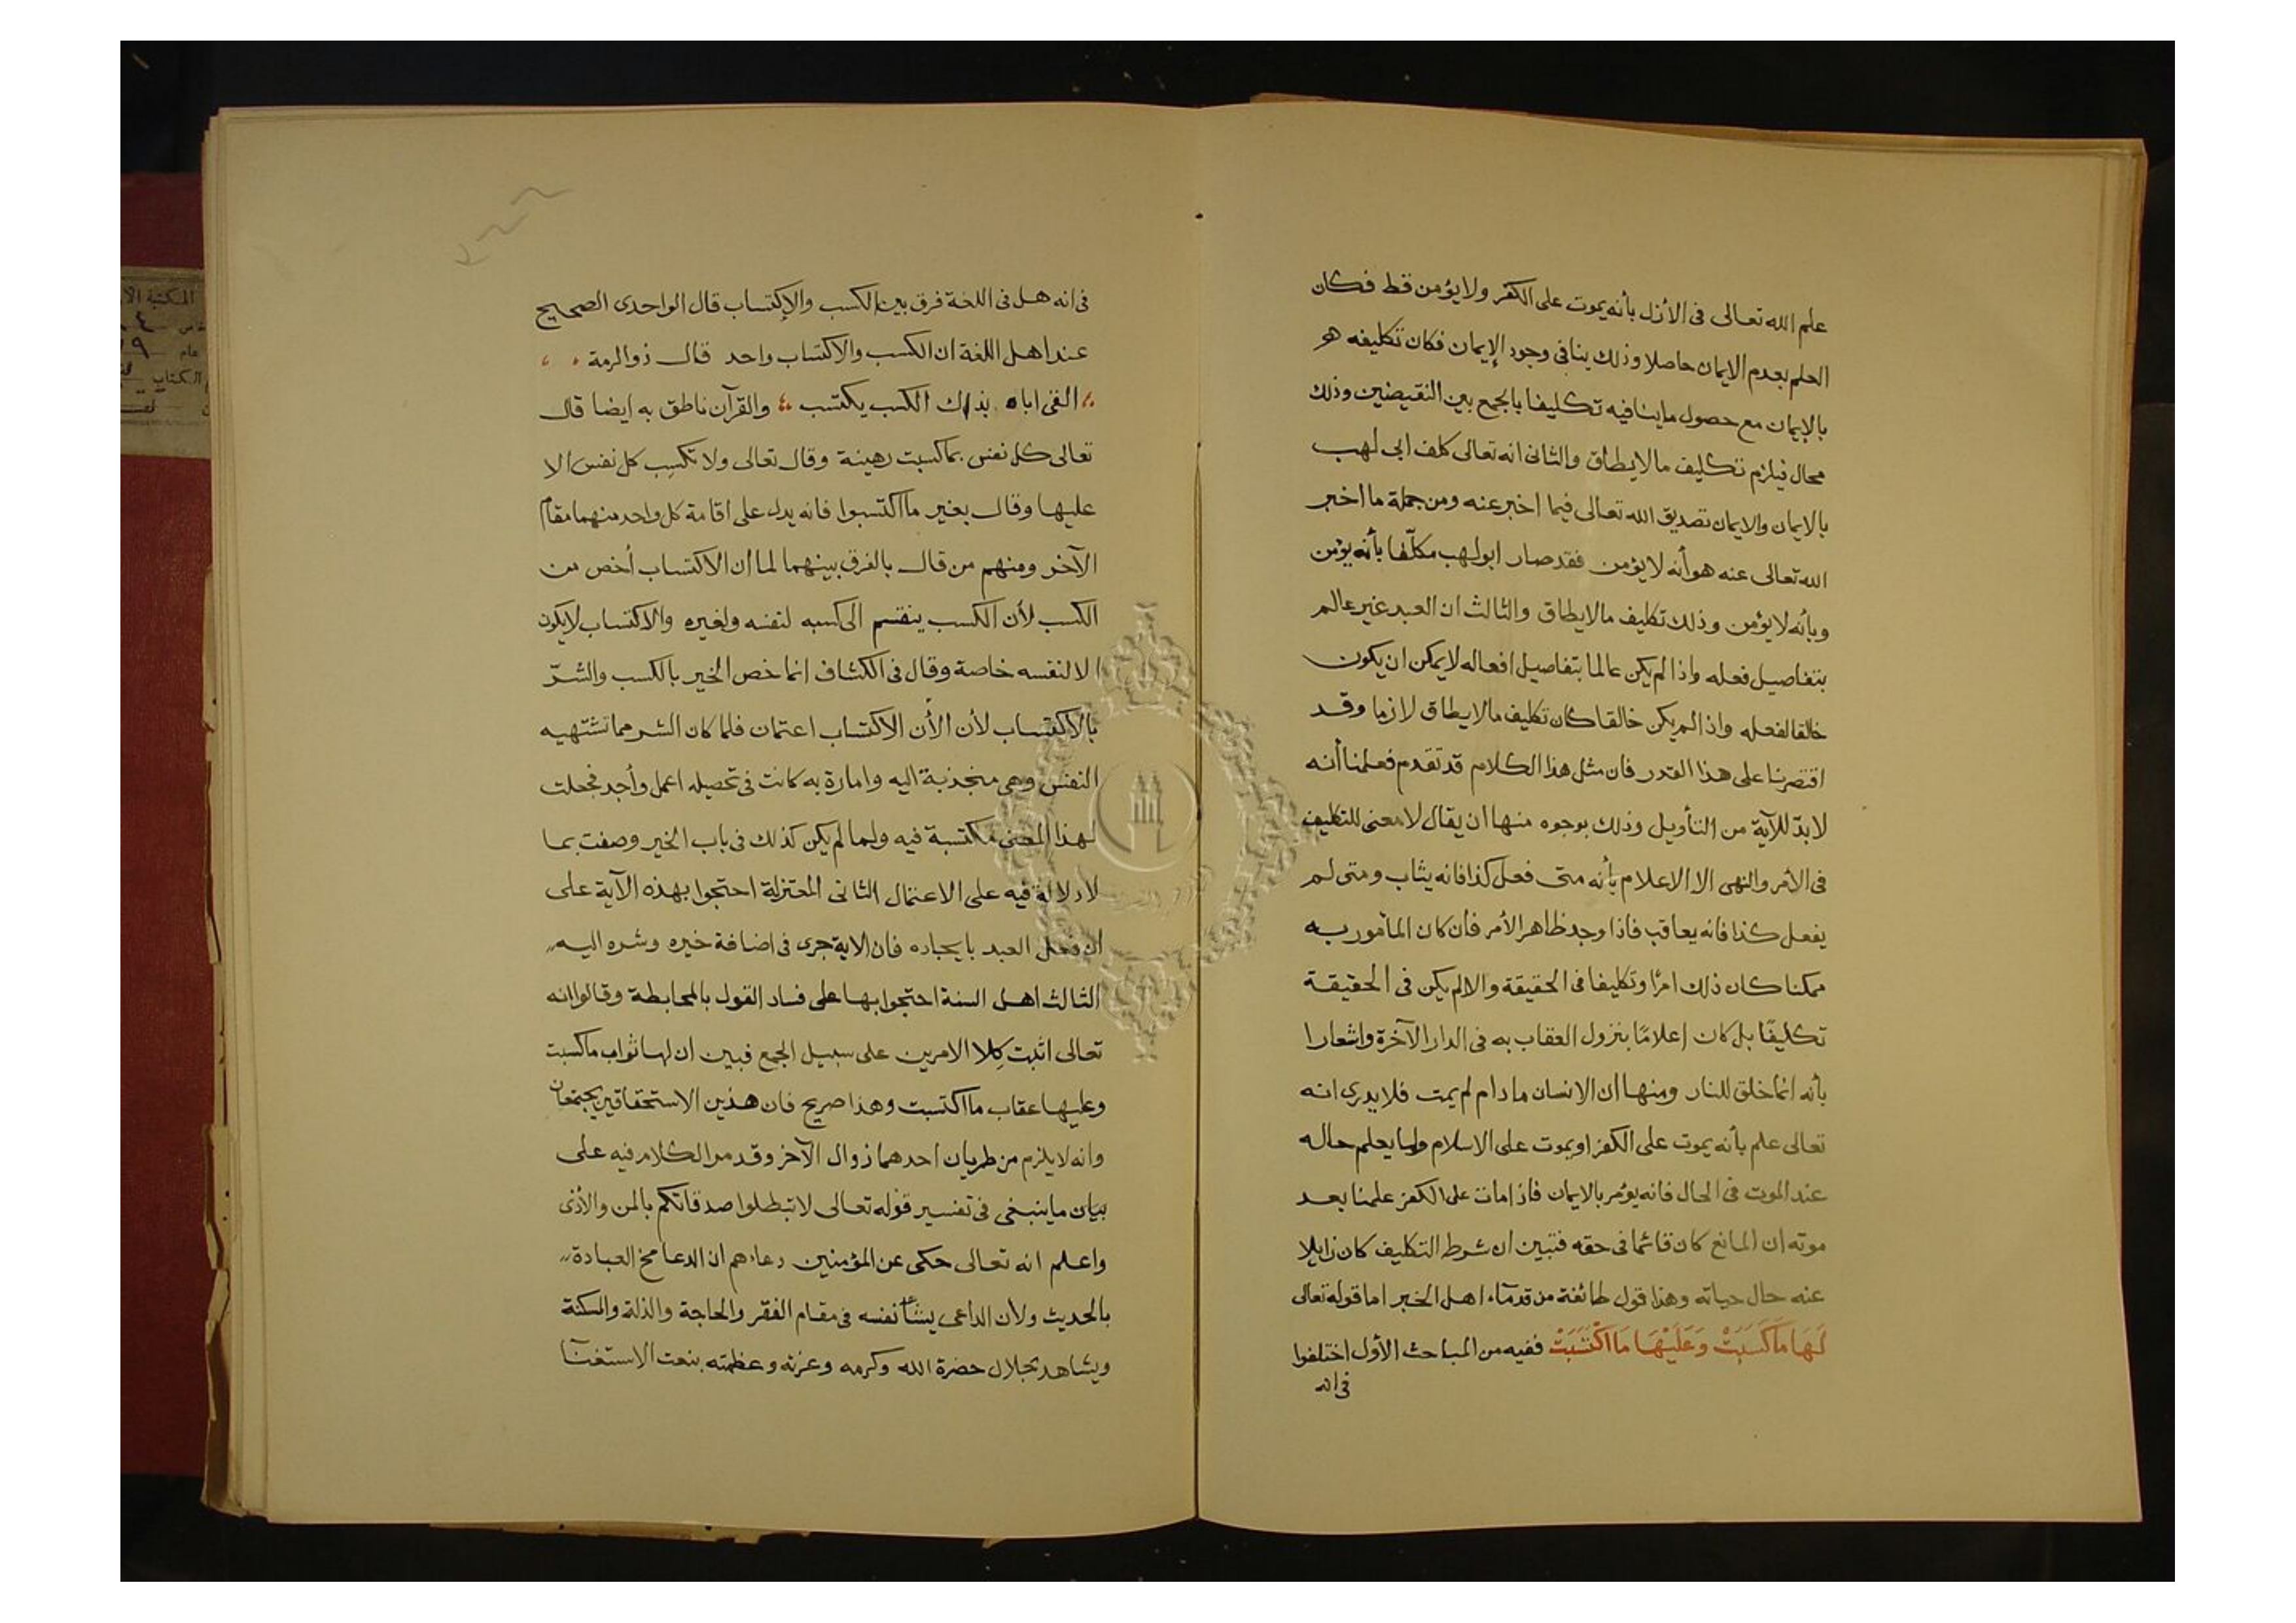 علم الله تعالى فى الأزل بأنه يموت على الكفر ولا يؤمن قط فكان
العلم بعدم الايمان حاصلا وذلك ينافى وجود الإيمان فكان تكليفه هو
بالإيمان مع حصول ما ينافيه تكليفا بالجمع بين النقيضين وذلك
محال فيلزم تكليف ما لا يطاق والثانى انه تعالى كلف ابى لهب
بالايمان والايمان تصديق الله تعالى فيما اخبر عنه ومن جملة ما اخبر
الله تعالى عنه هو أنه لا يؤمن فقد صار ابو لهب مكلّفا بأنه يؤمن
وبأنه لا يؤمن وذلك تكليف ما لا يطاق والثالث ان العبد غير عالم
بتفاصيل فعله واذا لم يكن عالما بتفاصيل افعاله لا يمكن ان يكون
خالقا لفعله واذا لم يكن خالقا كان تكليف ما لا يطاق لازما وقد
اقتصرنا على هذا القدر فان مثل هذا الكلام قد تقدم فعلمنا أنه
لا بدّ للآية من التأويل وذلك بوجوه منها ان يقال لا معنى للتكليف
فى الأمر والنهى الا الاعلام بأنه متى فعل كذا فانه يثاب ومتى لم
يفعل كذا فانه يعاقب فاذا وجد ظاهر الأمر فان كان المأمور به
ممكنا كان ذلك امرًا وتكليفا فى الحقيقة والا لم يكن فى الحقيقة
تكليفًا بل كان إعلامًا بنزول العقاب به فى الدار الآخرة واشعارا
بأنه انما خلق للنار ومنها ان الانسان ما دام لم يمت فلا يدرى انه
تعالى علم بأنه يموت على الكفر او يموت على الاسلام ولما يعلم حاله
عند الموت فى الحال فانه يؤمر بالايمان فاذا مات على الكفر علمنا بعد
موته ان المانع كان قائما فى حقه فتبين ان شرط التكليف كان زايلا
عنه حال حياته وهذا قول طائفة من قدماء اهل الخبر اما قوله تعالى
لَهَا مَا كَسَبَتْ وَعَلَيْهَا مَا اكْتَسَبَتْ ففيه من المباحث الأول اختلفوا
فى انه
فى انه هل فى اللغة فرق بين الكسب والإكتساب قال الواحدى الصحيح
عند اهل اللغة ان الكسب والاكتساب واحد قال ذو الرمة
الفى اباه بذاك الكسب يكتسب والقرآن ناطق به ايضا قال
تعالى كل نفس بما كسبت رهينة وقال تعالى ولا تكسِب كل نفس الا
عليها وقال بغير ما اكتسبوا فانه يدل على اقامة كل واحد منهما مقام
الآخر ومنهم من قال بالفرق بينهما لما ان الاكتساب أخص من
الكسب لأن الكسب ينقسم الى كسبه لنفسه ولغيره والاكتساب لا يكون
الا لنفسه خاصة وقال فى الكشاف انما خص الخير بالكسب والشرّ
بالاكتساب لأن الأن الاكتساب اعتمان فلما كان الشر مما تشتهيه
النفس وهى منجذبة اليه وامارة به كانت فى تحصيله اعمل وأجد فجعلت
لهذا المعنى مكتسبة فيه ولما لم يكن كذلك فى باب الخير وصفت بما
لا دلالة فيه على الاعتمال الثانى المعتزلة احتجوا بهذه الآية على
ان فعل العبد بايجاده فان الاية جرى فى اضافة خيره وشره اليه
الثالث اهل السنة احتجوا بها على فساد القول بالمحابطة وقالوا انه
تعالى اثبت كِلا الامرين على سبيل الجمع فبين ان لها ثواب ما كسبت
وعليها عقاب ما اكتسبت وهذا صريح فان هذين الاستحقاقين يجتمعان
وانه لا يلزم من طريان احدهما زوال الآخر وقد مر الكلام فيه على
بيان ما ينبغى فى تفسير قوله تعالى لا تبطلوا صدقاتكم بالمن والأذى
واعلم انه تعالى حكى عن المؤمنين دعاءهم ان الدعا مخ العبادة
بالحديث ولأن الداعى نفسه فى مقام الفقر والحاجة والذلة والمسكنة
ويشاهد بجلال حضرة الله وكرمه وعزته وعظمته بنعت الاستغنا